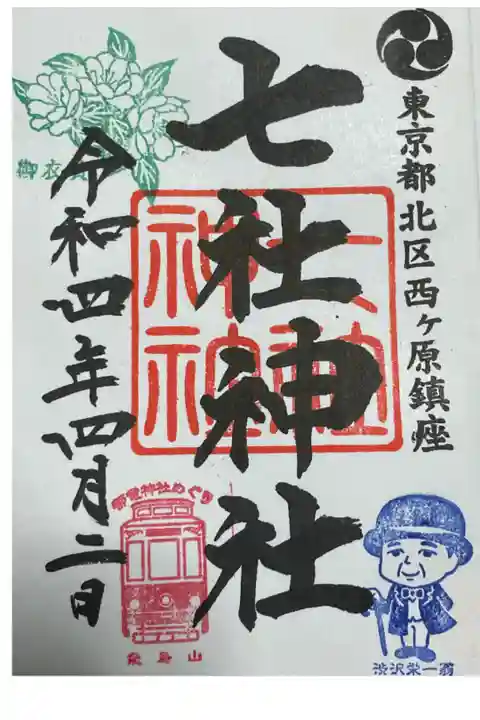 東京都北区西ヶ原鎮座
七社神社
七社神社
令和四年四月二日
御衣
都電神社めぐり
飛鳥山
渋沢栄一翁